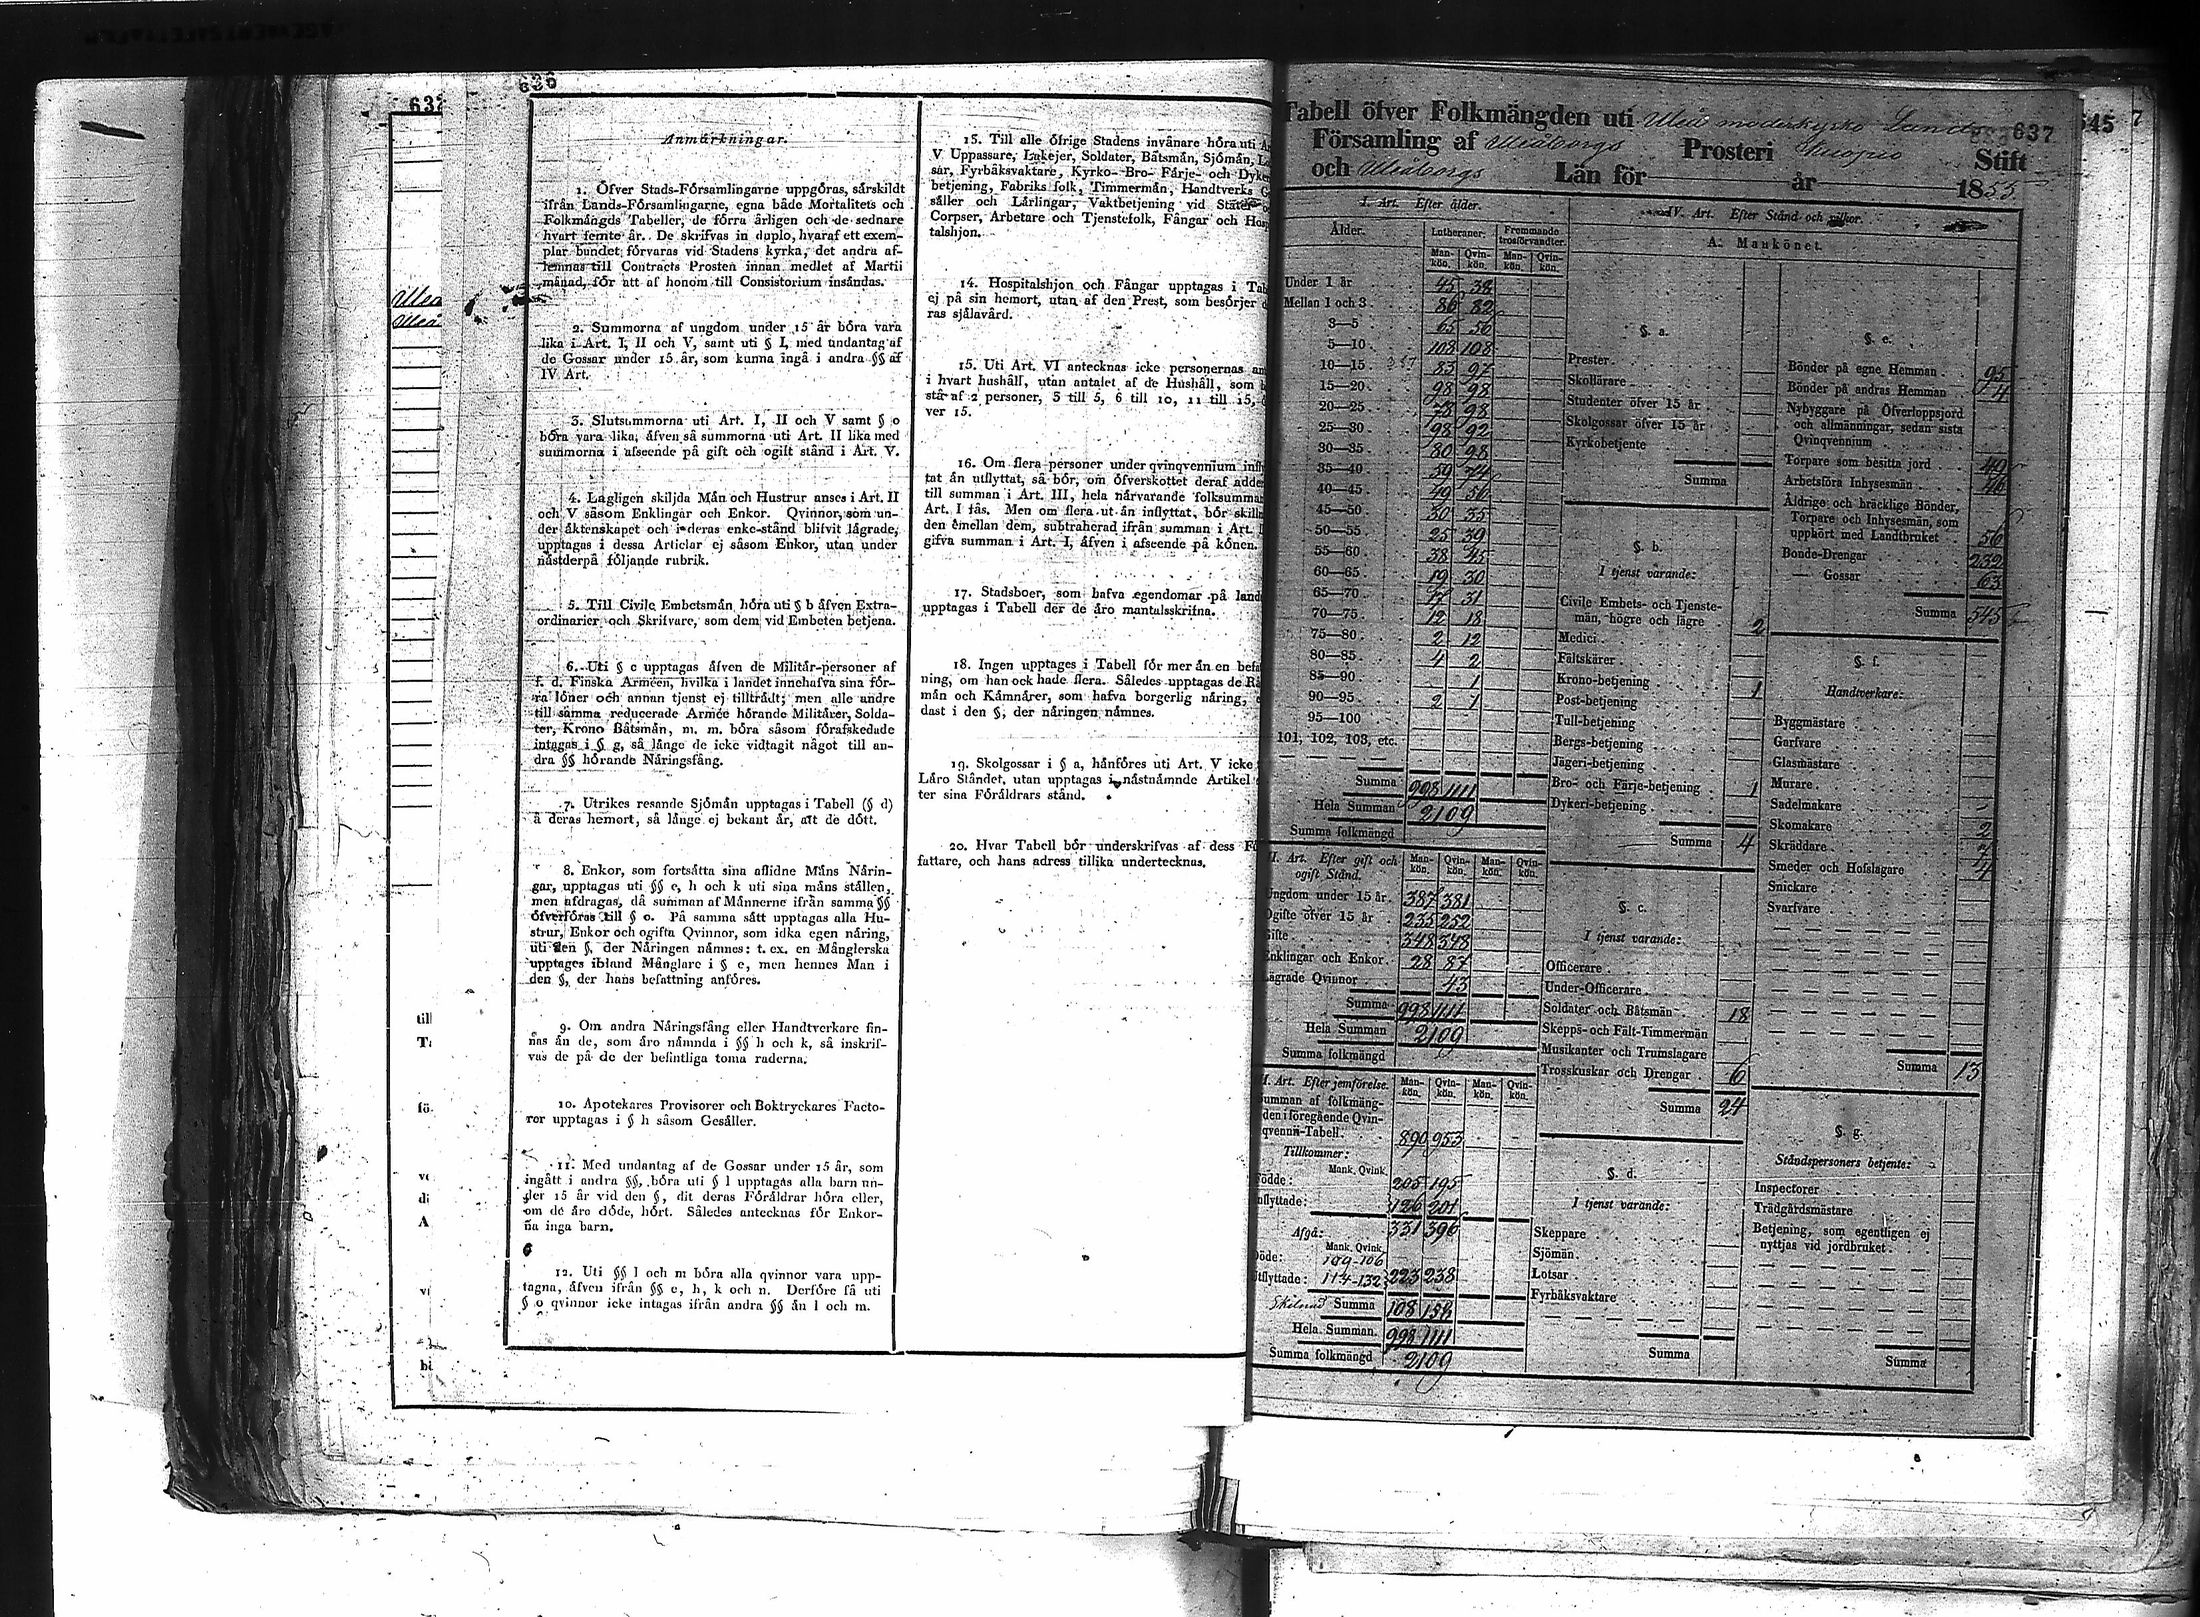 632
636
Uleå
Uleå
Anmärkningar.
1. Öfver Stads-Församlingarne uppgöras, särskildt
ifrån Lands-Församlingarne, egna både Mortalitets och
Folkmängds Tabeller, de förra årligen och de sednare
hvart femte år. De skrifvas in duplo, hvaraf ett exem-
plar bundet förvaras vid Stadens kyrka, det andra af-
lemnas till Contracts Prosten innan medlet af Martii
månad, för att af honom till Consistorium insändas.
2. Summorna af ungdom under 15 år böra vara
lika i Art. I, II och V, samt uti § I, med undantag af
de Gossar under 15 år, som kunna ingå i andra §§ af
IV Art.
3. Slutsummorna uti Art. I, II och V samt § o
böra vara lika, äfven så summorna uti Art. II lika med
summorna i afseende på gift och ogift stånd i Art. V.
4. Lagligen skiljda Män och Hustrur anses i Art. II
och V såsom Enklingar och Enkor. Qvinnor, som un-
der äktenskapet och i deras enke-stånd blifvit lägrade,
upptagas i dessa Articlar ej såsom Enkor, utan under
nästderpå följande rubrik.
5. Till Civile Embetsmän höra uti § b äfven Extra-
ordinarier och Skrifvare, som dem vid Embeten betjena.
6. Uti § c upptagas äfven de Militär-personer af
f. d. Finska Arméen, hvilka i landet innehafva sina för-
ra löner och annan tjenst ej tillträdt; men alle andre
till samma reducerade Armée hörande Militärer, Solda-
ter, Krono Båtsmän, m. m. böra såsom förafskedade
intagas i § g, så länge de icke vidtagit något till an-
dra §§ hörande Näringsfång.
7. Utrikes resande Sjömän upptagas i Tabell (§ d)
å deras hemort, så länge ej bekant är, att de dött.
8. Enkor, som fortsätta sina aflidne Mäns Närin-
gar, upptagas uti §§ e, h och k uti sina mäns ställen,
men afdragas, då summan af Männerne ifrån samma §§
öfverföras till § o. På samma sätt upptagas alla Hu-
strur, Enkor och ogifta Qvinnor, som idka egen näring,
uti den §, der Näringen nämnes: t. ex. en Månglerska
upptages ibland Månglare i § e, men hennes Man i
den §, der hans befattning anföres.
9. Om andra Näringsfång eller Handtverkare fin-
nas än de, som äro nämnda i §§ h och k, så inskrif-
vas de på de der befintliga toma raderna.
10. Apotekares Provisorer och Boktryckares Facto-
ror upptagas i § h såsom Gesäller.
11. Med undantag af de Gossar under 15 år, som
ingått i andra §§, böra uti § l upptagas alla barn un-
der 15 år vid den §, dit deras Föräldrar höra eller,
om de äro döde, hört. Således antecknas för Enkor-
na inga barn.
12. Uti §§ l och m böra alla qvinnor vara upp-
tagna, äfven ifrån §§ e, h, k och n. Derföre få uti
§ o qvinnor icke intagas ifrån andra §§ än l och m.
15. Till alle öfrige Stadens invånare höra uti
V Uppassare, Lakejer, Soldater, Båtsmän, Sjömän,
sar, Fyrbåksvaktare, Kyrko- Bro- Färje- och Dyke
betjening, Fabriks folk, Timmermän, Handtverks
säller och Lärlingar, Vaktbetjening vid Stater
Corpser, Arbetare och Tjenstefolk, Fångar och Hosp
talshjon.
14. Hospitalshjon och Fångar upptagas i Tab
ej på sin hemort, utan af den Prest, som besörjer
ras själavård.
15. Uti Art. VI antecknas icke personernas an
i hvart hushåll, utan antalet af de Hushåll, som
stå af 2 personer, 3 till 5, 6 till 10, 11 till 15,
ver 15.
16. Om flera personer under qvinqvennium infly
tat än utflyttat, så bör, om öfverskottet deraf adde
till summan i Art. III, hela närvarande folksumman
Art. I fås. Men om flera ut än inflyttat, bör skilln
den emellan dem, subtraherad ifrån summan i Art.
gifva summan i Art. I, äfven i afseende på könen.
17. Stadsboer, som hafva egendomar på land
upptagas i Tabell der de äro mantalsskrifna.
18. Ingen upptages i Tabell för mer än en befa
ning, om han ock hade flera. Således upptagas de Rå
män och Kämnärer, som hafva borgerlig näring,
dast i den §, der näringen nämnes.
19. Skolgossar i § a, hänföres uti Art. V icke
Läro Ståndet, utan upptagas i nästnämnde Artikel
ter sina Föräldrars stånd.
20. Hvar Tabell bör underskrifvas af dess Fö
fattare, och hans adress tillika undertecknas.
Tabell öfver Folkmängden uti Uleå moderkyrko Lands 637
645
7
Församling af Uleåborgs Prosteri Kuopio Stift
och Uleåborgs Län för år 1855
I. Art. Efter ålder.
Ålder.
Lutheraner. Främmande trosförvandter.
Man-kön. Qvin-kön. Man-kön. Qvin-kön.
Under 1 år 45 38
Mellan 1 och 3 86 82
3—5 65 56
5—10 108 108
10—15 83 97
15—20 98 98
20—25 78 98
25—30 98 92
30—35 80 98
35—40 59 74
40—45 49 56
45—50 30 35
50—55 25 39
55—60 38 45
60—65 19 30
65—70 17 31
70—75 12 18
75—80 2 12
80—85 4 2
85—90 1
90—95 2 1
95—100
101, 102, 103, etc.
Summa 998 1111
Hela Summan 2109
Summa folkmängd
II. Art. Efter gift och ogift Stånd.
Man-kön. Qvin-kön. Man-kön. Qvin-kön.
Ungdom under 15 år 387 381
Ogifte öfver 15 år 235 252
Gifte 348 348
Enklingar och Enkor 28 87
Lägrade Qvinnor 43
Summa 998 1111
Hela Summan 2109
Summa folkmängd
I. Art. Efter jemförelse.
Man-kön. Qvin-kön. Man-kön. Qvin-kön.
Summan af folkmäng-
den i föregående Qvin-
qvenni-Tabell 890 953
Tillkommer:
Mank. Qvink.
Födde: 205 195
Inflyttade: 126 201
331 396
Afgå:
Mank. Qvink.
Döde: 109-106
Utflyttade: 114-132 223 238
Skilnad Summa 108 158
Hela Summan. 998 1111
Summa folkmängd 2109
IV. Art. Efter Stånd och vilkor.
A. Mankönet.
§. a.
Prester
Skollärare
Studenter öfver 15 år
Skolgossar öfver 15 år
Kyrkobetjente
Summa
§. b.
I tjenst varande:
Civile Embets- och Tjenste-
män, högre och lägre 2
Medici
Fältskärer
Krono-betjening 1
Post-betjening
Tull-betjening
Bergs-betjening
Jägeri-betjening
Bro- och Färje-betjening 1
Dykeri-betjening
Summa 4
§. c.
I tjenst varande:
Officerare
Under-Officerare
Soldater och Båtsmän 18
Skepps- och Fält-Timmermän
Musikanter och Trumslagare
Trosskuskar och Drengar 6
Summa 24
§. d.
I tjenst varande:
Skeppare
Sjömän
Lotsar
Fyrbåksvaktare
Summa
§. e.
Bönder på egne Hemman 95
Bönder på andras Hemman 4
Nybyggare på Öfverloppsjord
och allmänningar, sedan sista
Qvinqvennium
Torpare som besitta jord 49
Arbetsföra Inhysesmän 46
Åldrige och bräcklige Bönder,
Torpare och Inhysesmän, som
upphört med Landtbruket 56
Bonde-Drengar 232
— Gossar 63
Summa 545
§. f.
Handtverkare:
Byggmästare
Garfvare
Glasmästare
Murare
Sadelmakare
Skomakare 2
Skräddare 7
Smeder och Hofslagare 4
Snickare
Svarfvare
Summa 13
§. g.
Ståndspersoners betjente:
Inspectorer
Trädgårdsmästare
Betjening, som egentligen ej
nyttjas vid jordbruket
Summa